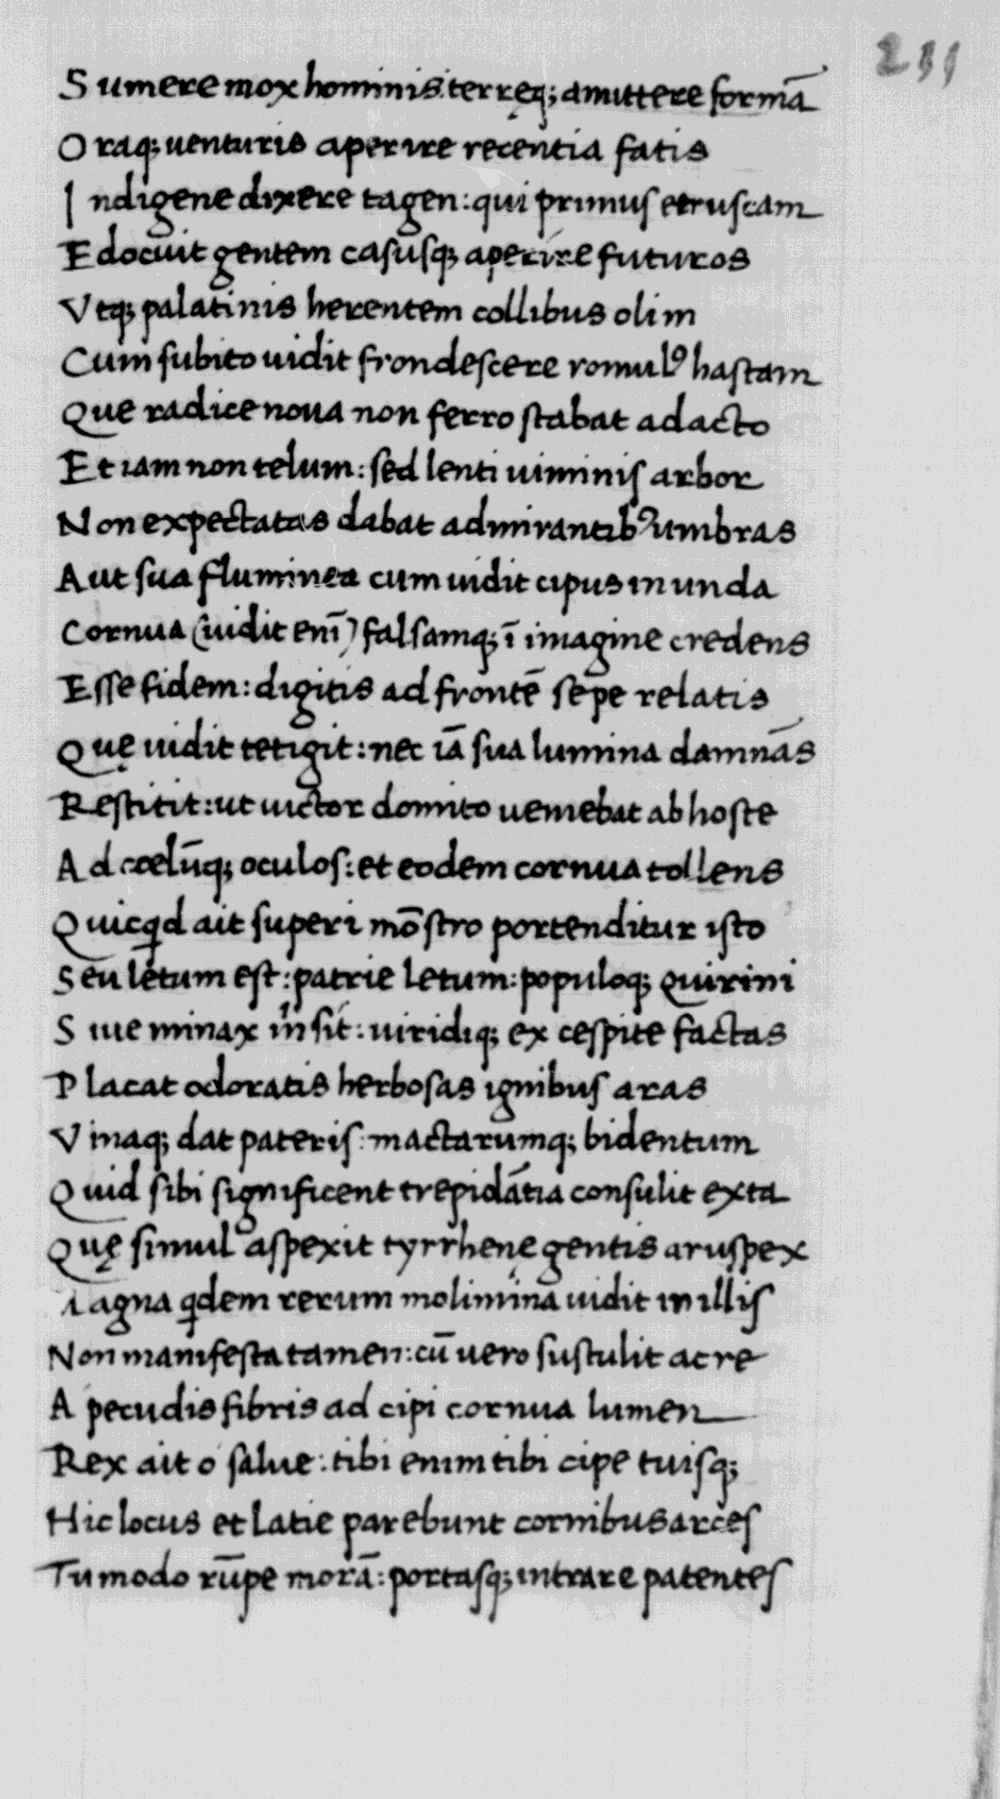 231
Sumere mox hominis: terręq; amittere formā
Oraq; uenturis aperire recentia fatis
Indigene dixere tagen: qui primus etruscam
Edocuit gentem casusq; aperire futuros
Vtq; palatinis herentem collibus olim
Cum subito uidit frondescere romulꝰ hastam
Que radice noua non ferro stabat adacto
Et iam non telum: sed lenti uiminis arbor
Non expectatas dabat admirantibꝰ umbras
Aut sua fluminea cum uidit cipus in unda
Cornua (uidit enī) falsamq; ī imagine credens
Esse fidem: digitis ad frontē sepe relatis
Quę uidit tetigit: nec iā sua lumina damnās
Restitit: ut uictor domito ueniebat ab hoste
Ad cœlūq; oculos: et eodem cornua tollens
Quicqd ait superi mōstro portenditur isto
Seu letum est: patrie letum: populoq; quirini
Siue minax m̄ sit: uiridiq; ex cespite factas
Placat odoratis herbosas ignibus aras
Vinaq; dat pateris: mactarumq; bidentum
Quid sibi significent trepidātia consulit exta
Quę simul aspexit tyrrhenę gentis aruspex
Magna qdem rerum molimina uidit in illis
Non manifesta tamen: cū uero sustulit acre
A pecudis fibris ad cipi cornua lumen
Rex ait o salue: tibi enim tibi cipe tuisq;
Hic locus et latie parebunt cornibus arces
Tu modo rūpe morā: portasq; intrare patentes